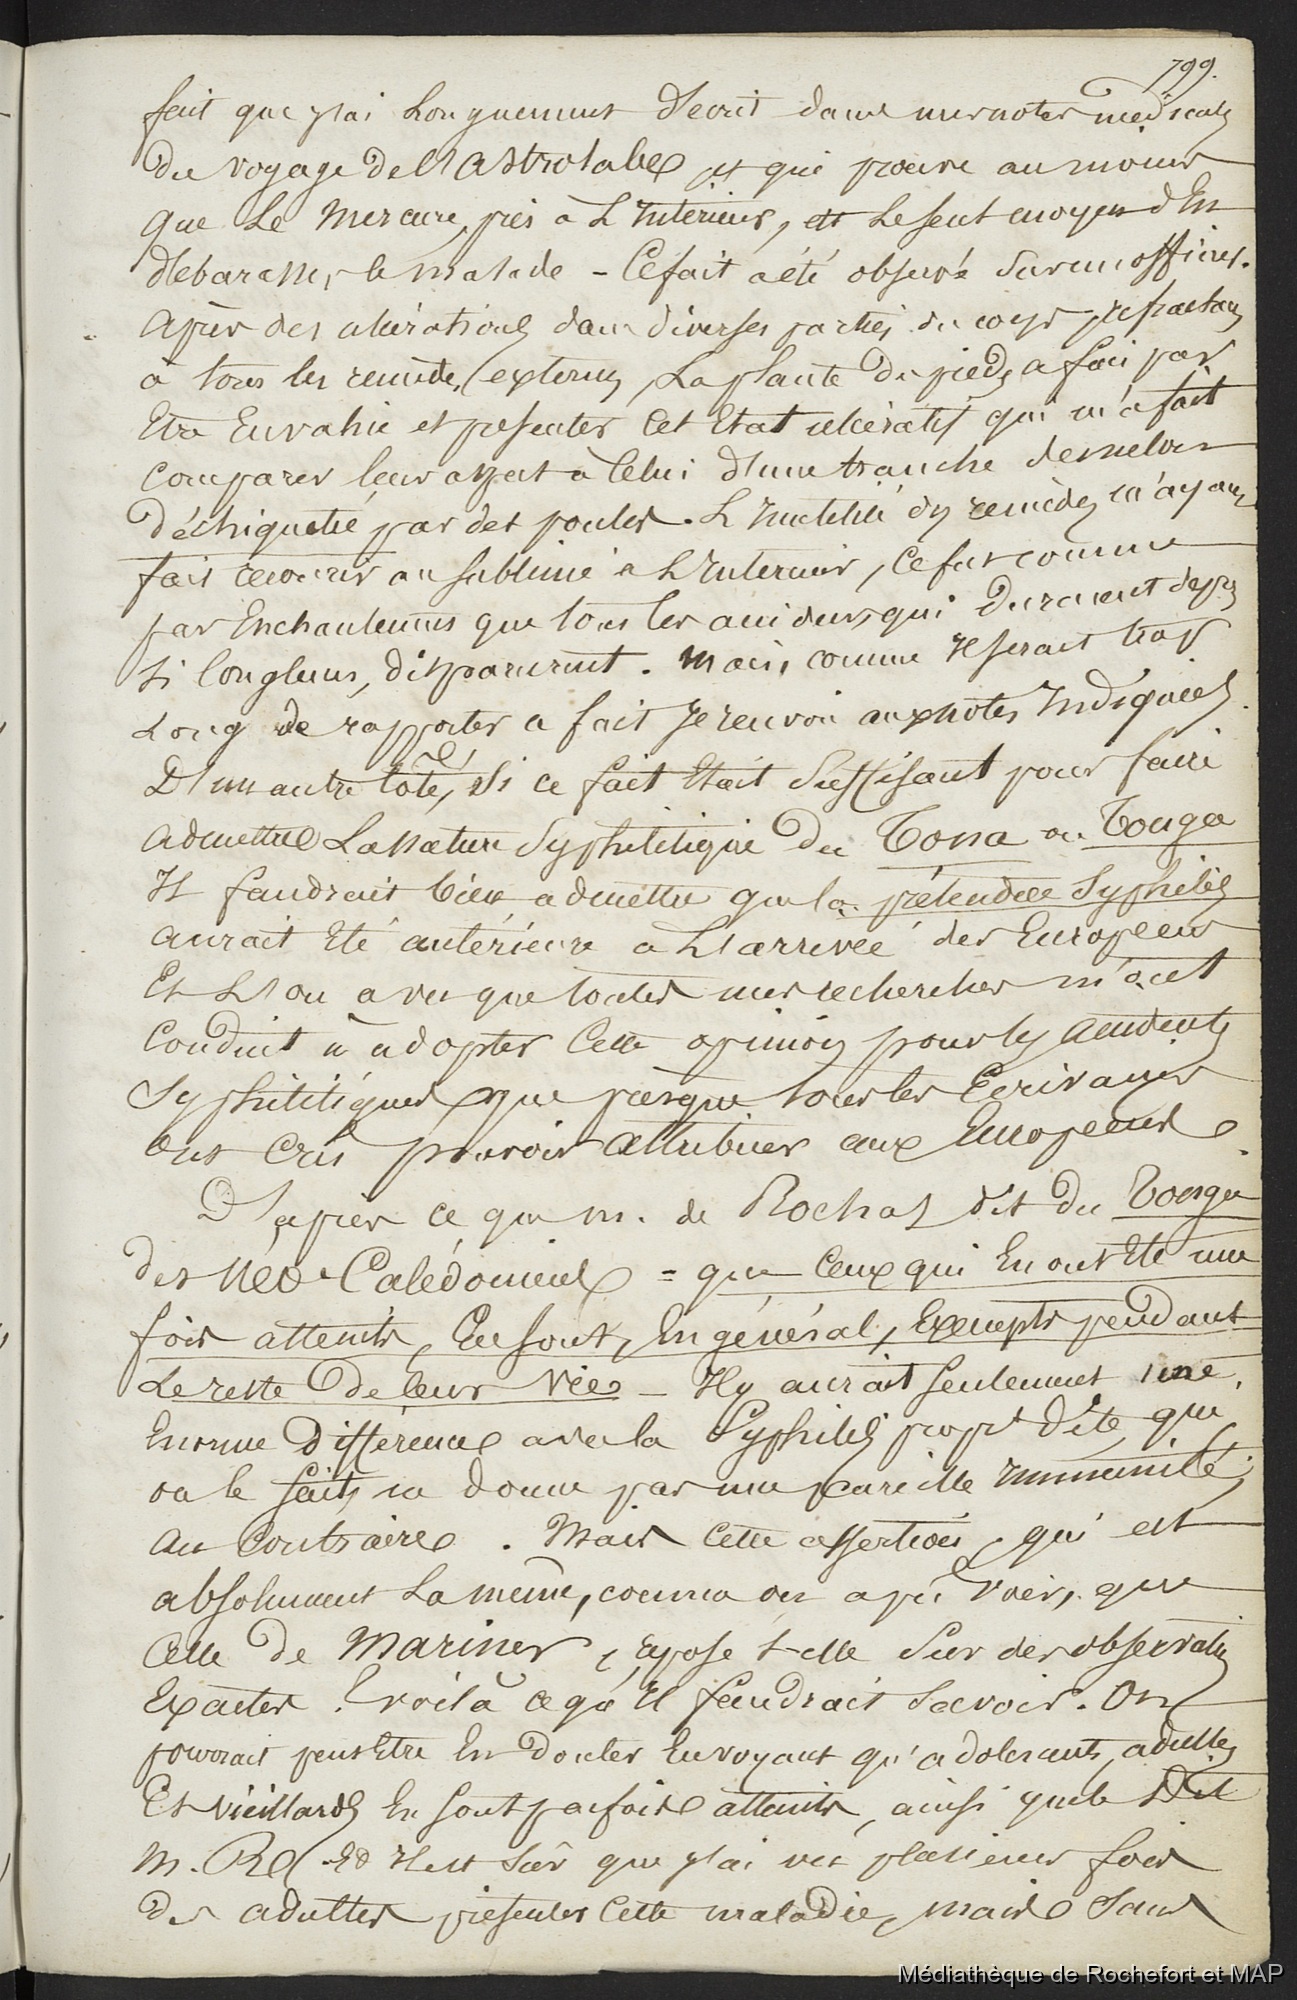 799.
fait que j'ai longuement décrit dans mes notes médicales
du voyage de l'Astrolabe et qui prouve au moins
que le mercure, pris à l'Intérieur, est le seul moyen d'En
débarasser le malade - Ce fait a été observé sur un officier.
Après des ulcérations dans diverses parties du corps, réfractaires
à tous les remèdes externes, la plante du pieds a fini par
Etre Envahie et présenter cet Etat ulcératif qui m'a fait
comparer leur aspect à Celui d'une tranche de melon
déchiqueté par des poules. L'Inutilité des remèdes m'ayant
fait recourir au sublimé à l'Intérieur, ce fut comme
par Enchantement que tous les accidens qui duraient depuis
si longtems, disparurent. Mais, comme Il serait trop
Long de rapporter ce fait Je renvoie aux notes Indiquées.
D'un autre côté, si ce fait Etait suffisant pour faire
admettre La nature Syphilitique du Tona ou Tonga
Il faudrait bien admettre que la prétendue Syphilis
aurait Eté antérieure à L'arrivée des Européens
Et L'on a vu que toutes mes recherches m'ont
Conduit à adopter Cette opinion pour les accidents
Syphilitiques que presque tous les Ecrivains
ont Cru pouvoir attribuer aux Européens.
D'après ce que m. de Rochas dit du Tonga
des Néo-Calédoniens = que Ceux qui En ont Eté une
fois atteints, En sont, En général, Exempts pendant
Le reste de leur vie - Il y aurait seulement une
Enorme différence avec la Syphilis propt dite que
on le sait, ne donne pas une pareille Immunité;
au Contraire. Mais cette assertion, qui est
absolument La même, comme on a pu voir, que
Celle de Mariner, repose t-elle sur des observations
Exactes. Voilà ce qu'Il faudrait savoir. On
pourrait peut Etre En douter En voyant qu'adolescents, adultes
Et vieillards En sont parfois atteints, ainsi que le Dit
M. R. Et Il est sûr que j'ai vu plusieurs fois
des adultes présenter Cette maladie, mais sans
Médiathèque de Rochefort et MAP